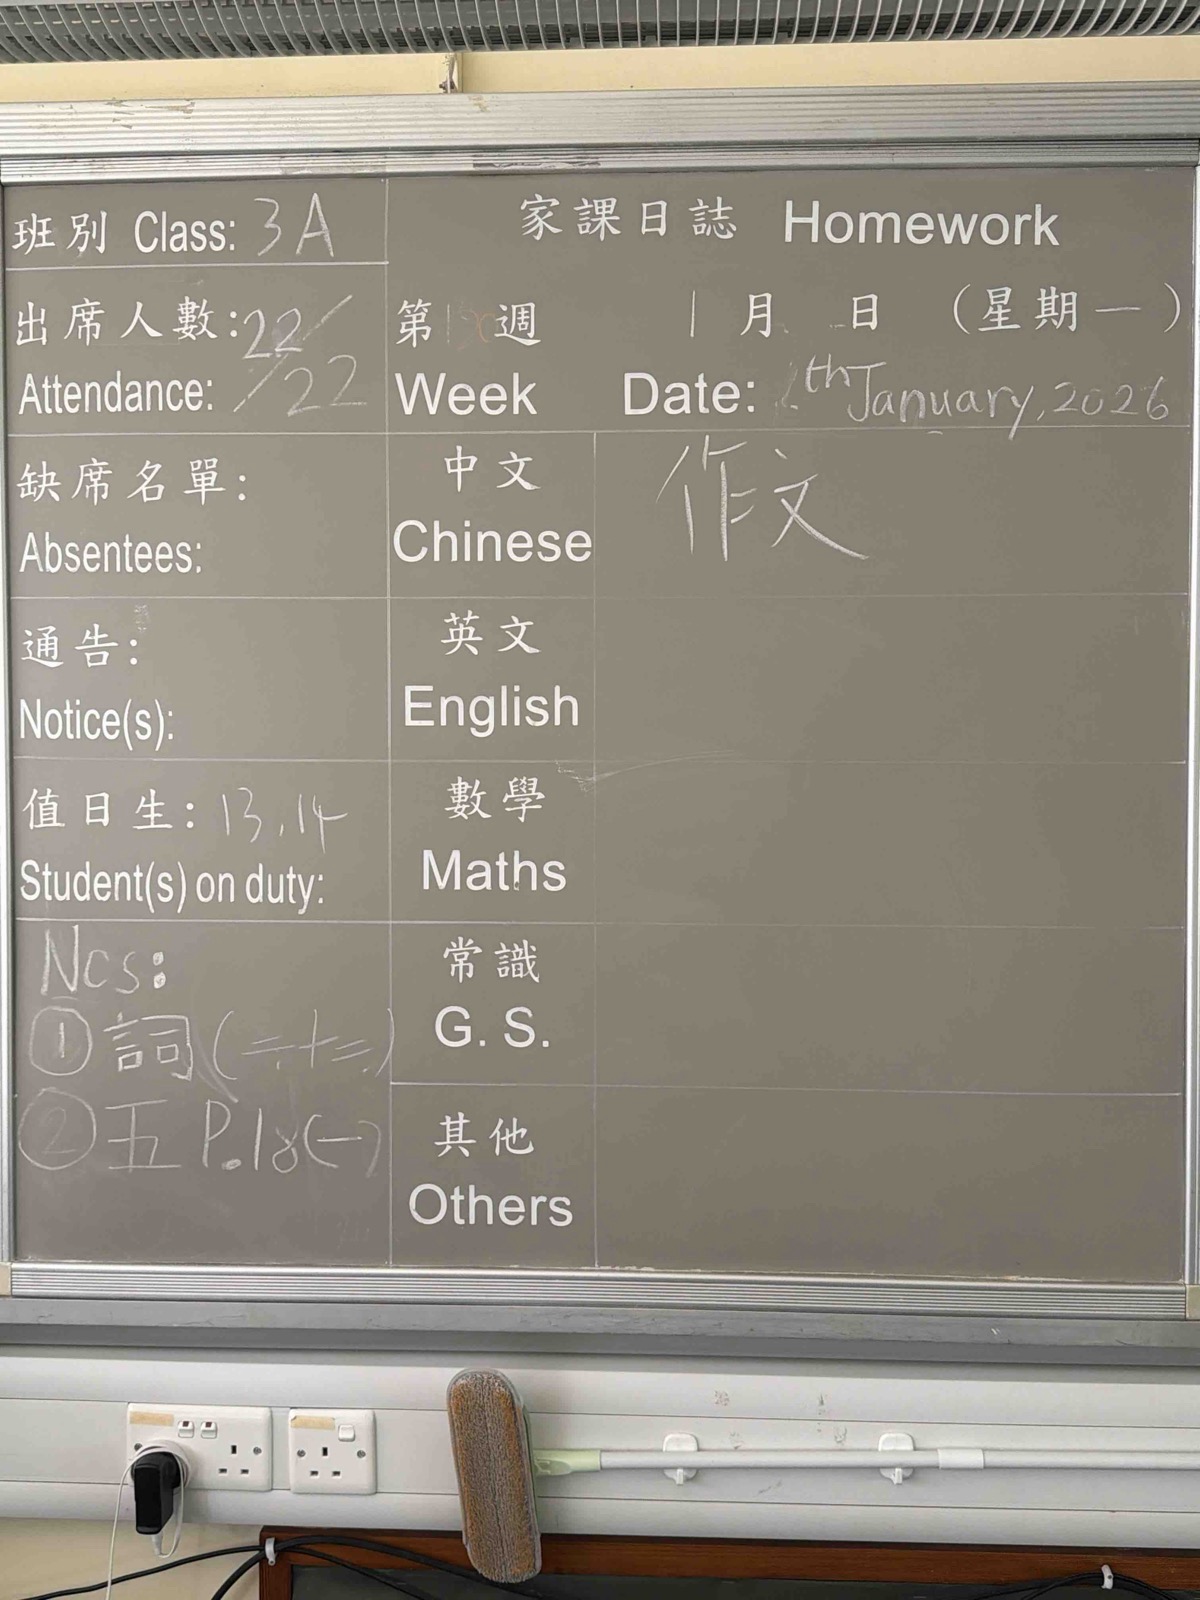 班別 Class: 3A
出席人數: 22/
Attendance: /22
缺席名單:
Absentees:
通告:
Notice(s):
值日生: 13, 14
Student(s) on duty:
Ncs:
① 詞(二十二)
② 五 P.18(一)
家課日誌 Homework
第 週 1月 日 (星期一)
Week Date: th January, 2026
中文 作文
Chinese
英文
English
數學
Maths
常識
G. S.
其他
Others